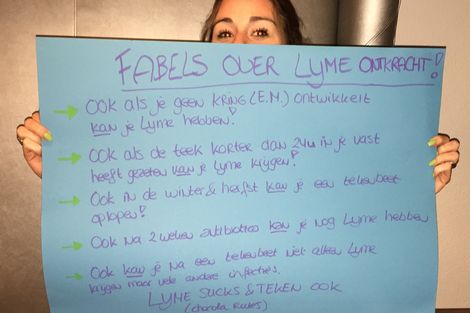 FABELS OVER LYME ONTKRACHT!
OOK als je geen KRING (E.M.) ONTWIKKELT
kan je Lyme hebben!
OOK als de teek korter dan 24u in je vast
heeft gezeten kan je Lyme krijgen!
OOK in de winter & herfst kan je een tekenbeet
oplopen!
OOK NA 2 weken antibiotica kan je nog Lyme hebben
OOK kan je NA een tekenbeet niet alleen Lyme
krijgen maar vele andere infecties.
LYME SUCKS & TEKEN OOK